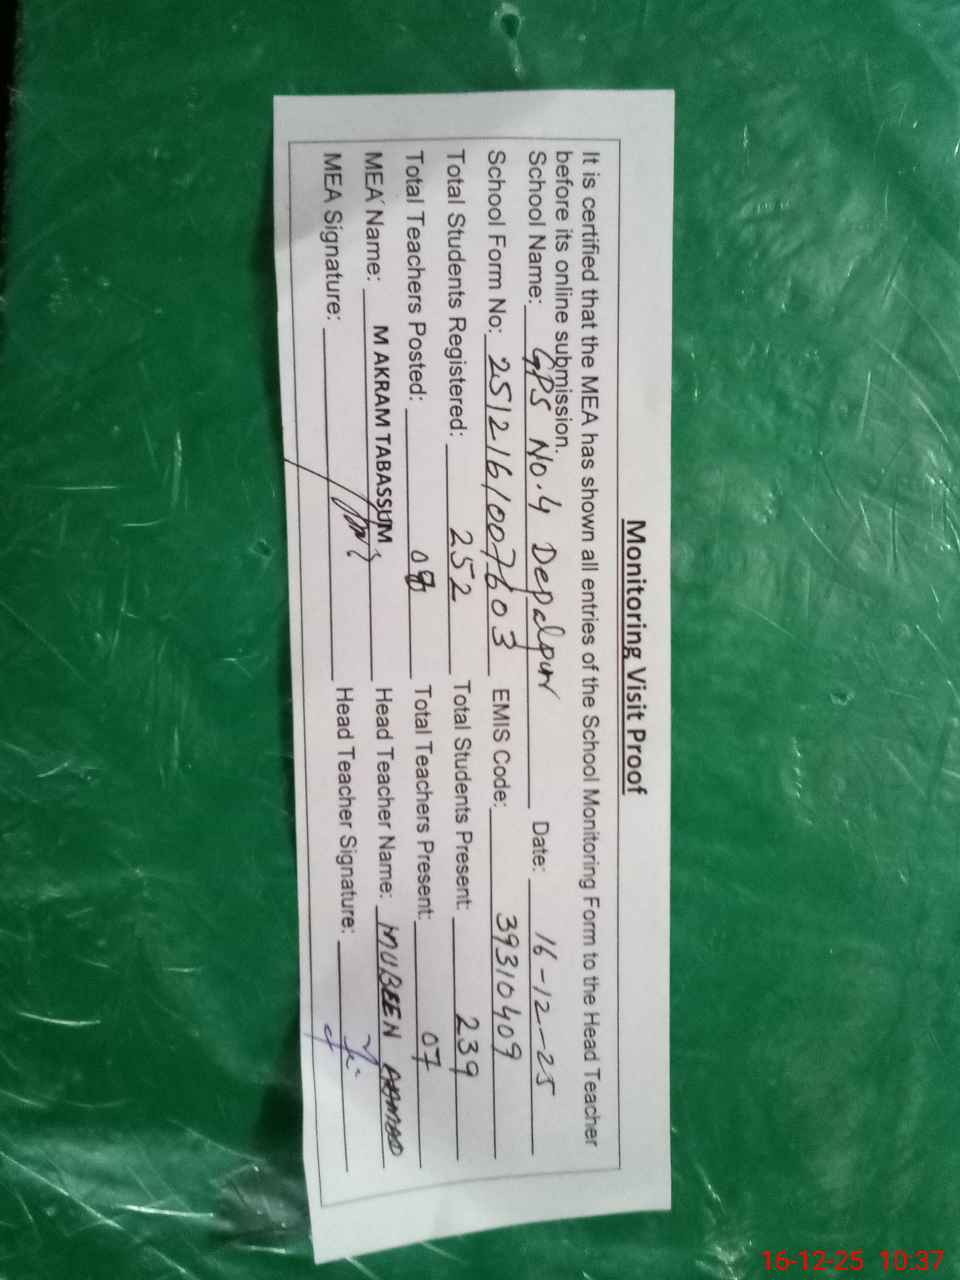 Monitoring Visit Proof
It is certified that the MEA has shown all entries of the School Monitoring Form to the Head Teacher
before its online submission.
School Name: GPS No.4 Depalpur Date: 16-12-25
School Form No: 2512161007603 EMIS Code: 39310409
Total Students Registered: 252 Total Students Present: 239
Total Teachers Posted: 08 Total Teachers Present: 07
MEA Name: M AKRAM TABASSUM Head Teacher Name: MUBEEN AHMAD
MEA Signature: Head Teacher Signature:
16-12-25 10:37